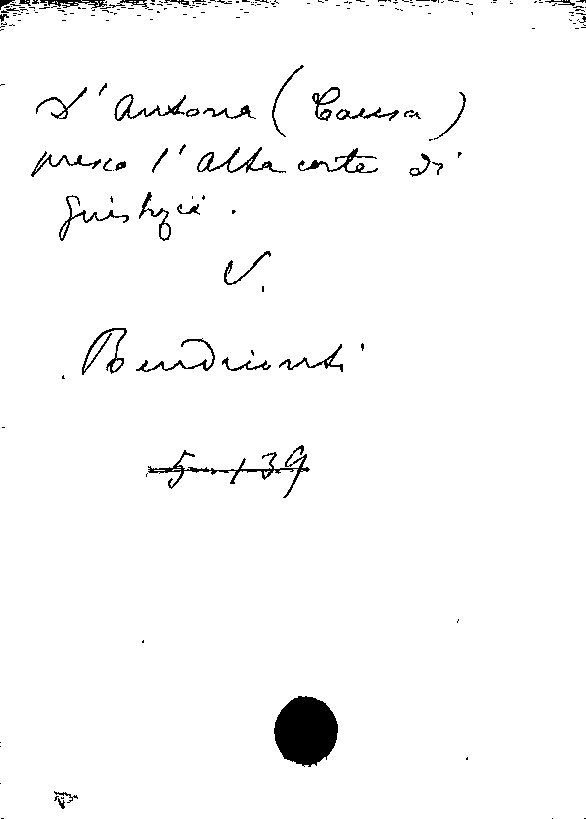 D'Antona (Causa)
presso l'alta corte di
giustizia.
V.
Bendrienti
5 139